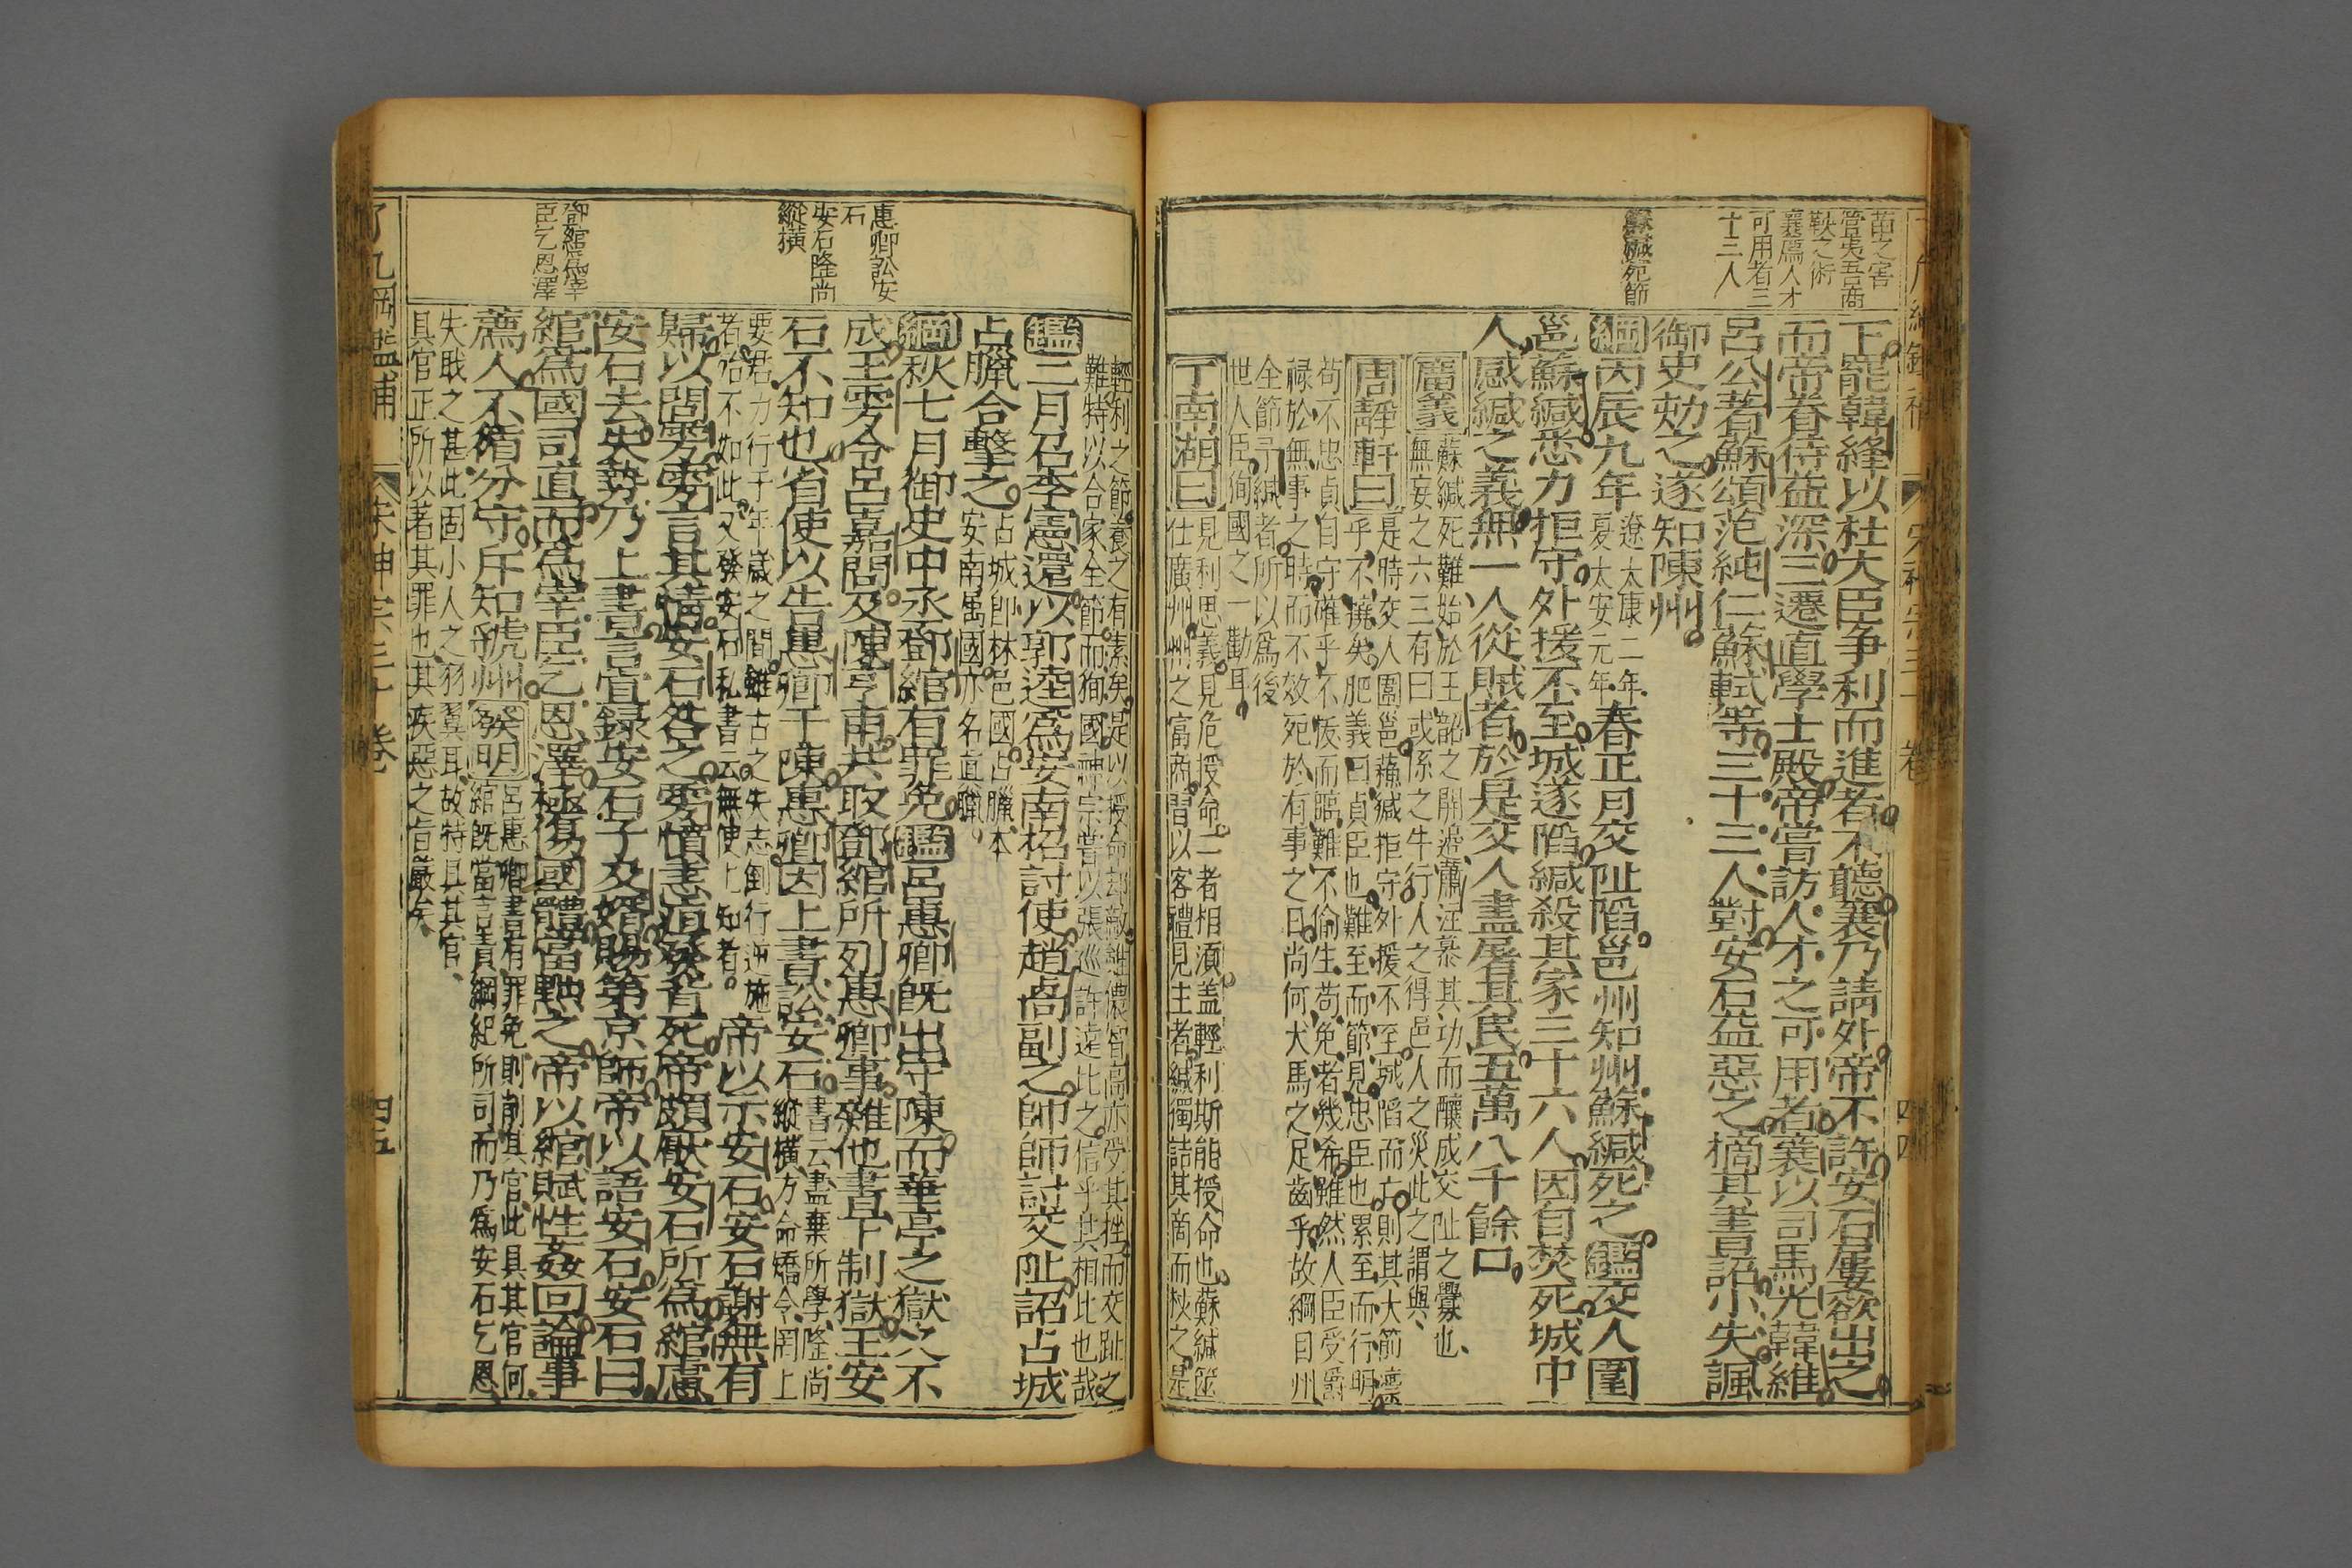 苗之害
管夷吾商
鞅之術
襄薦人才
可用者三
十三人
蘇緘死節
下寵韓絳以杜大臣爭利而進者不聽襄乃請外帝不許安石屢欲出之
而帝眷侍益深三遷直學士殿帝嘗訪人才之可用者襄以司馬光韓維
呂公著蘇頌范純仁蘇軾等三十三人對安石益惡之擿其書詔小失諷
御史劾之遂知陳州
綱丙辰九年
遼太康二年
夏太安元年
春正月交趾陷邕州知州蘇緘死之鑑交人圍
邕蘇緘悉力拒守外援不至城遂陷緘殺其家三十六人因自焚死城中
人感緘之義無一人從賊者於是交人盡屠其民五萬八千餘口
廣義
蘇緘死難始於王韶之開邊蕭注慕其功而釀成交趾之釁也
無妄之六三有曰或係之牛行人之得邑人之災此之謂與
周靜軒曰
是時交人圍邕蘇緘拒守外援不至城陷而亡則其大節凜
乎不撓矣肥義曰貞臣也難至而節見忠臣也累至而行明
苟不忠貞自守確乎不恢而臨難不偷生苟免者幾希雖然人臣受爵
祿於無事之時而不效死於有事之日尚何犬馬之足齒乎故綱目州
全節予緘者所以為後
世人臣徇國之一勸耳
丁南湖曰
見利思義見危授命二者相須蓋輕利斯能授命也蘇緘筮
仕廣州州之富商間以客禮見主者緘獨詰其商而杖之是
輕利之節養之有素矣是以授命却敵誰儂智高亦受其挫而交趾之
難特以合家全節而徇國神宗嘗以張巡許遠比之信乎其相比也哉
惠卿訟安
石
安石隆尚
縱橫
鄧綰為宰
臣乞恩澤
鑑二月召李憲還以郭逵為安南招討使趙卨副之師師討交趾詔占城
占臘合擊之
占城即林邑國占臘本
安南屬國亦名直臘
綱秋七月御史中丞鄧綰有罪免鑑呂惠卿既出守陳而華亭之獄久不
成王雱令呂嘉問及陳亨甫共取鄧綰所列惠卿事雜他書下制獄王安
石不知也省使以告惠卿于陳惠卿因上書訟安石
書云盡棄所學隆尚
縱橫方命矯令罔上
要君力行于年歲之間雖古之失志倒行逆施
者殆不如此又發安石私書云無使上知者
帝以示安石安石謝無有
歸以問雱雱言其情安石咎之雱憤恚疽發背死帝頗厭安石所為綰慮
安石去失勢乃上書言宜錄安石子及婿賜第京師帝以語安石安石曰
綰為國司直而為宰臣乞恩澤極傷國體當黜之帝以綰賦性姦回論事
薦人不循分守斥知虢州
發明
呂惠卿書有罪免則削其官此具其官何
綰既當言責綱紀所司而乃為安石乞恩
失職之甚此固小人之羽翼耳故特具其官
具官正所以著其罪也其疾惡之旨嚴矣
了凡綱鑑補
宋神宗三十卷
四五